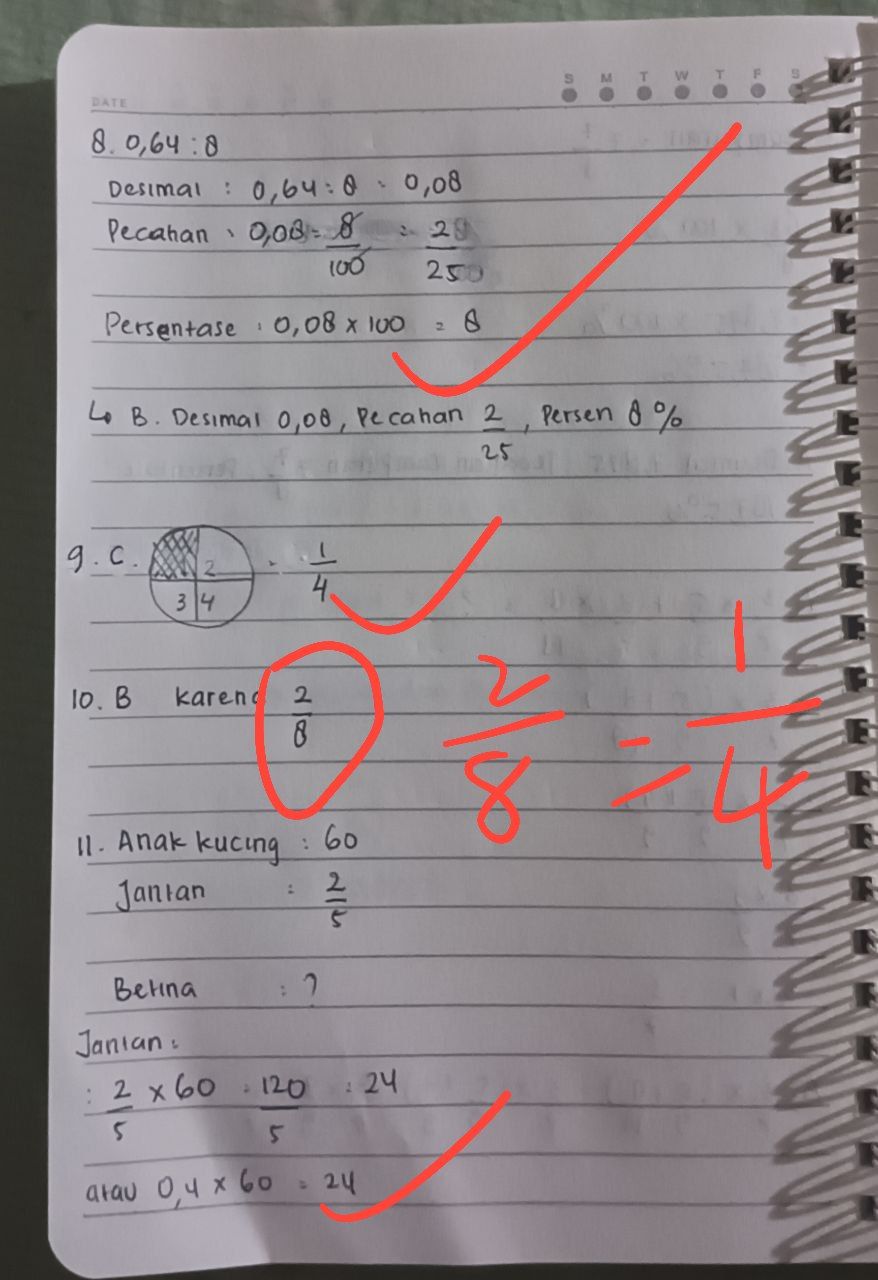 S M T W T F S
DATE
8. 0,64 : 8
Desimal : 0,64 : 8 = 0,08
Pecahan : 0,08 = 8/100 = 2/25
Persentase : 0,08 x 100 = 8
↳ B. Desimal 0,08, Pecahan 2/25, Persen 8%
9. C. 2 3 4 = 1/4
10. B karena 2/8 2/8 = 1/4
11. Anak kucing : 60
Jantan : 2/5
Betina : ?
Jantan :
: 2/5 x 60 = 120/5 = 24
atau 0,4 x 60 = 24